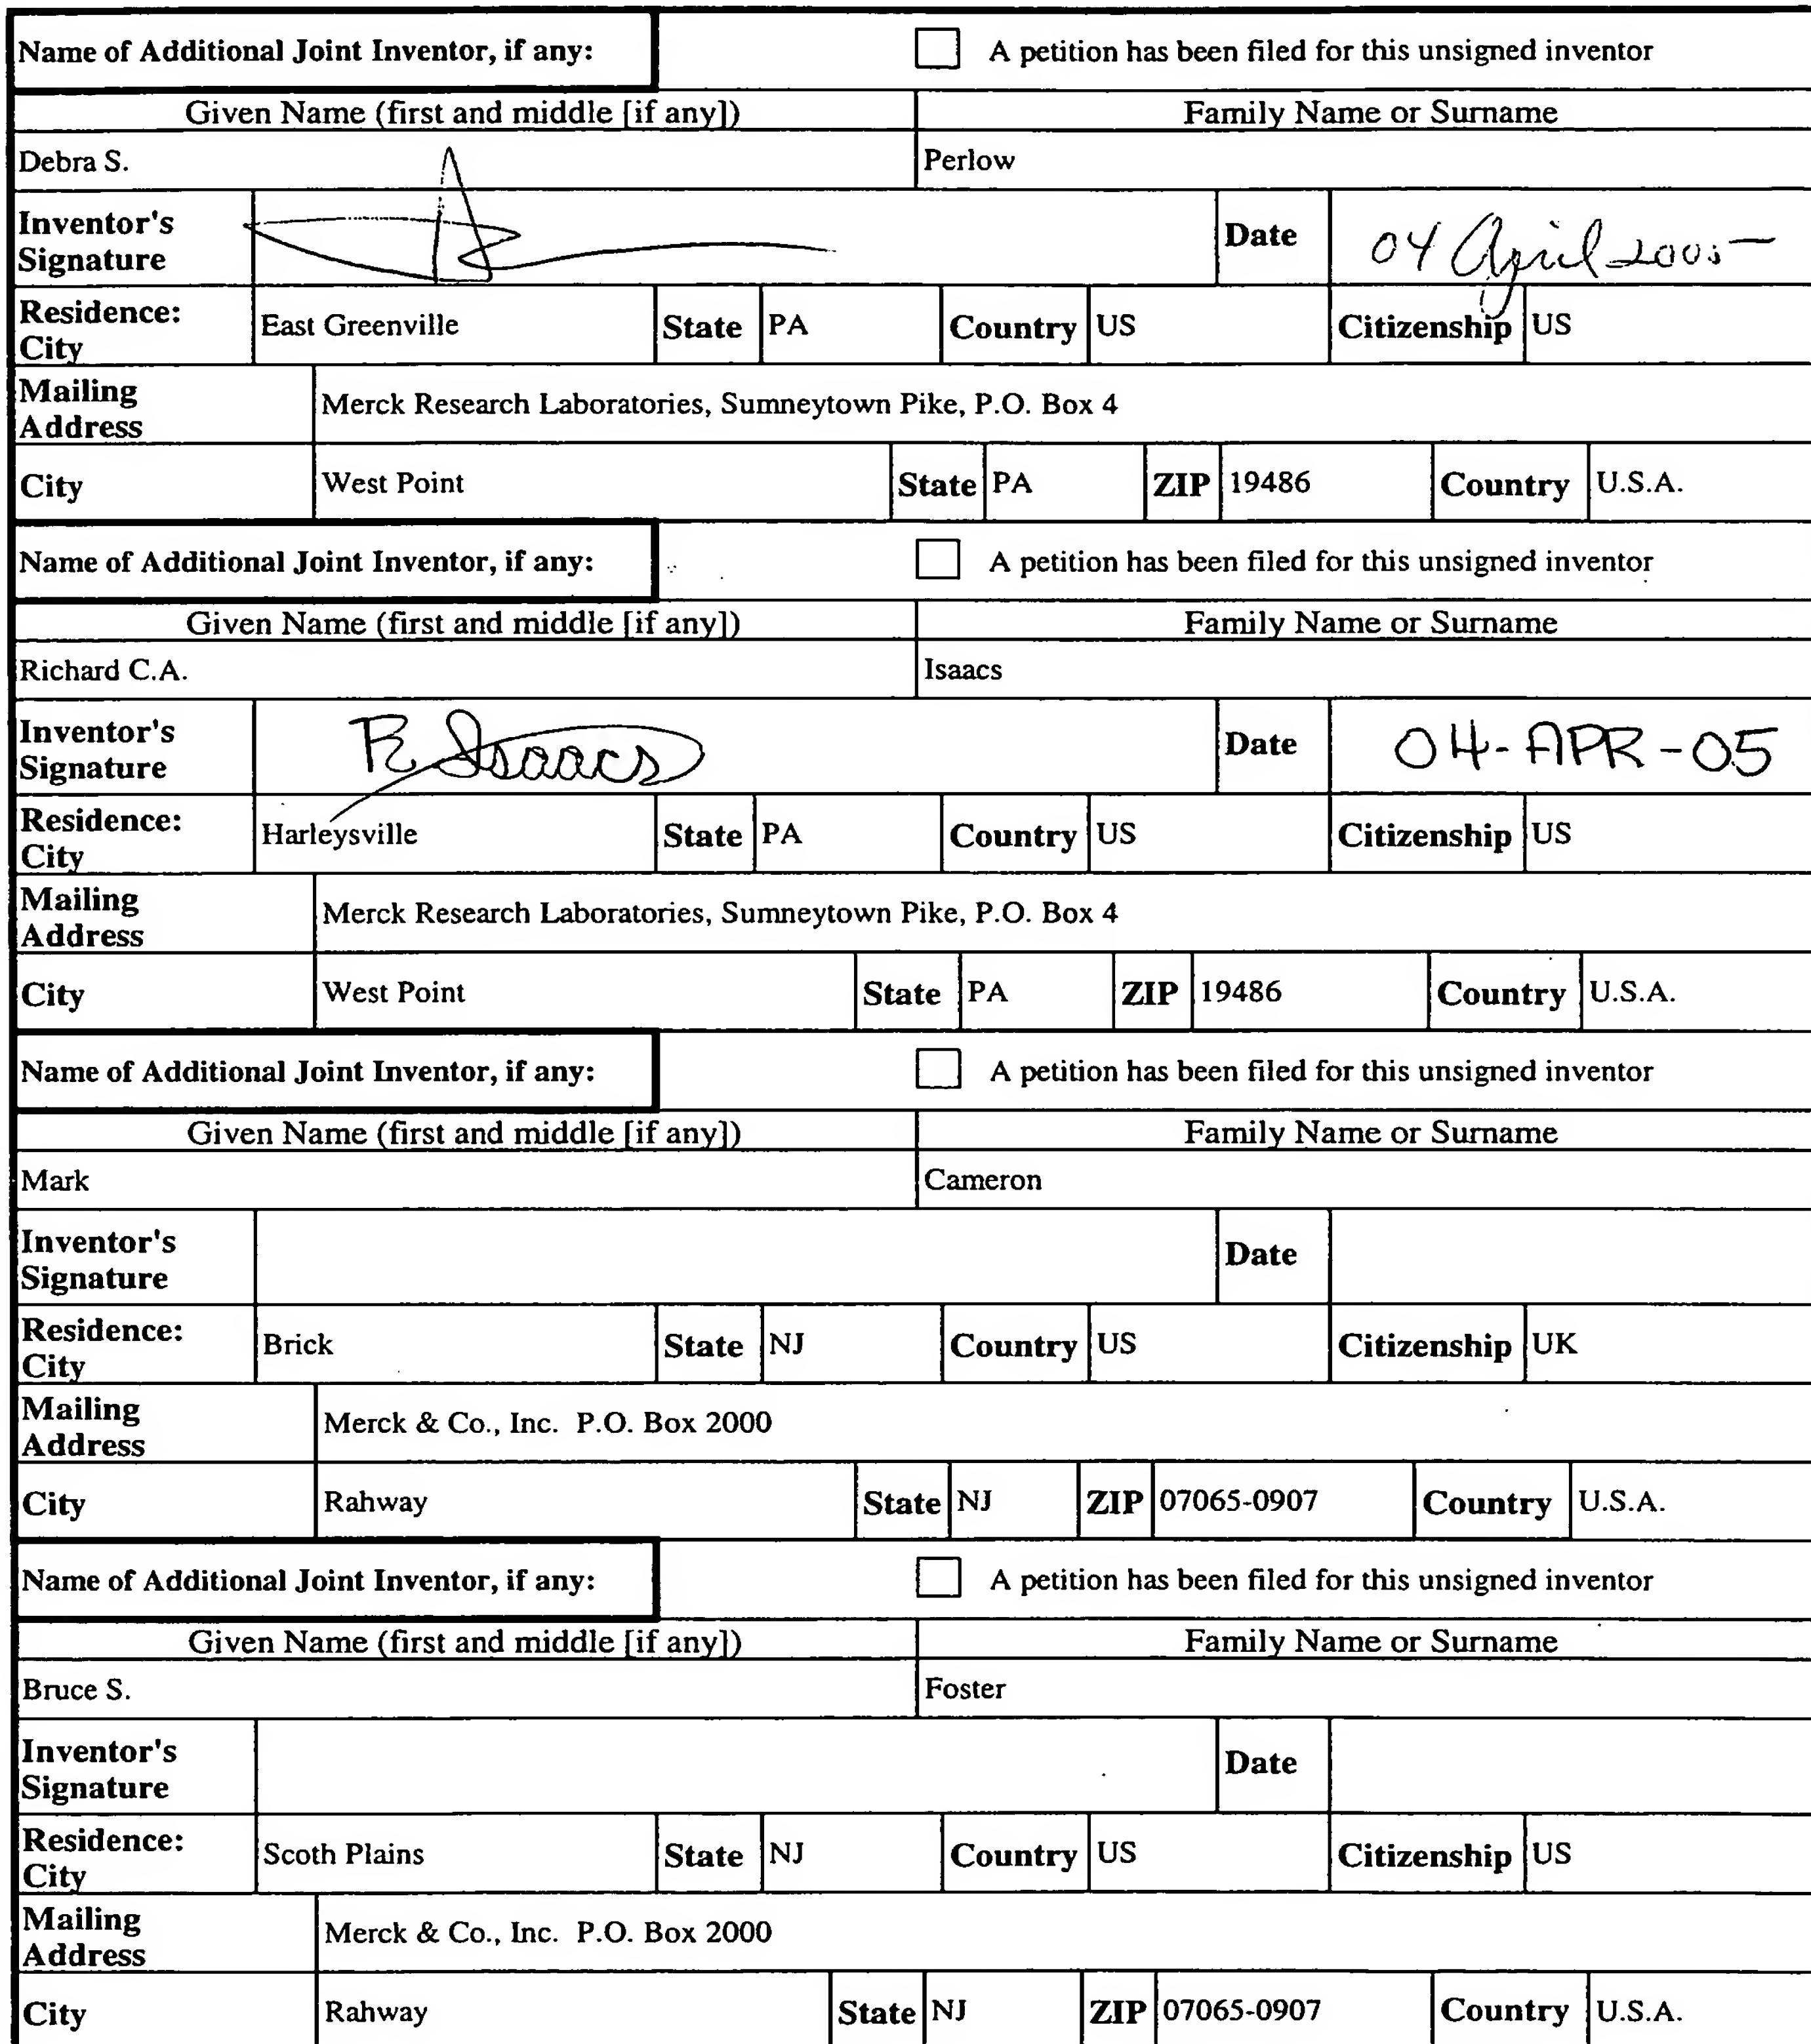 Name of Additional Joint Inventor, if any: A petition has been filed for this unsigned inventor
Given Name (first and middle [if any]) Family Name or Surname
Debra S. Perlow
Inventor's Signature Date 04 April 2005
Residence: City East Greenville State PA Country US Citizenship US
Mailing Address Merck Research Laboratories, Sumneytown Pike, P.O. Box 4
City West Point State PA ZIP 19486 Country U.S.A.
Name of Additional Joint Inventor, if any: A petition has been filed for this unsigned inventor
Given Name (first and middle [if any]) Family Name or Surname
Richard C.A. Isaacs
Inventor's Signature R Isaacs Date 04-APR-05
Residence: City Harleysville State PA Country US Citizenship US
Mailing Address Merck Research Laboratories, Sumneytown Pike, P.O. Box 4
City West Point State PA ZIP 19486 Country U.S.A.
Name of Additional Joint Inventor, if any: A petition has been filed for this unsigned inventor
Given Name (first and middle [if any]) Family Name or Surname
Mark Cameron
Inventor's Signature Date
Residence: City Brick State NJ Country US Citizenship UK
Mailing Address Merck & Co., Inc. P.O. Box 2000
City Rahway State NJ ZIP 07065-0907 Country U.S.A.
Name of Additional Joint Inventor, if any: A petition has been filed for this unsigned inventor
Given Name (first and middle [if any]) Family Name or Surname
Bruce S. Foster
Inventor's Signature Date
Residence: City Scoth Plains State NJ Country US Citizenship US
Mailing Address Merck & Co., Inc. P.O. Box 2000
City Rahway State NJ ZIP 07065-0907 Country U.S.A.